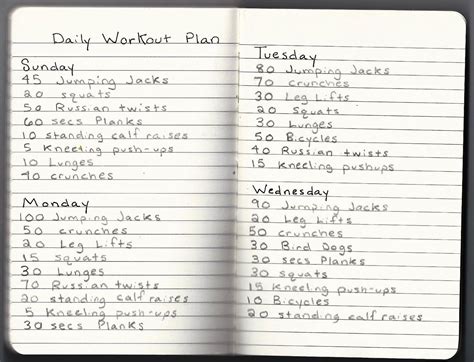 Daily Workout Plan
Sunday
45 Jumping Jacks
20 squats
50 Russian twists
60 secs Planks
10 standing calf raises
5 Kneeling push-ups
10 Lunges
40 crunches
Monday
100 Jumping Jacks
50 crunches
20 Leg Lifts
15 squats
30 Lunges
70 Russian twists
20 standing calf raises
5 Kneeling push-ups
30 secs Planks
Tuesday
80 Jumping Jacks
70 crunches
30 Leg Lifts
30 squats
30 Lunges
50 Bicycles
40 Russian twists
15 Kneeling pushups
Wednesday
90 Jumping Jacks
20 Leg Lifts
50 crunches
30 Bird Dogs
30 secs Planks
30 squats
15 Kneeling push-ups
10 Bicycles
20 standing calf raises